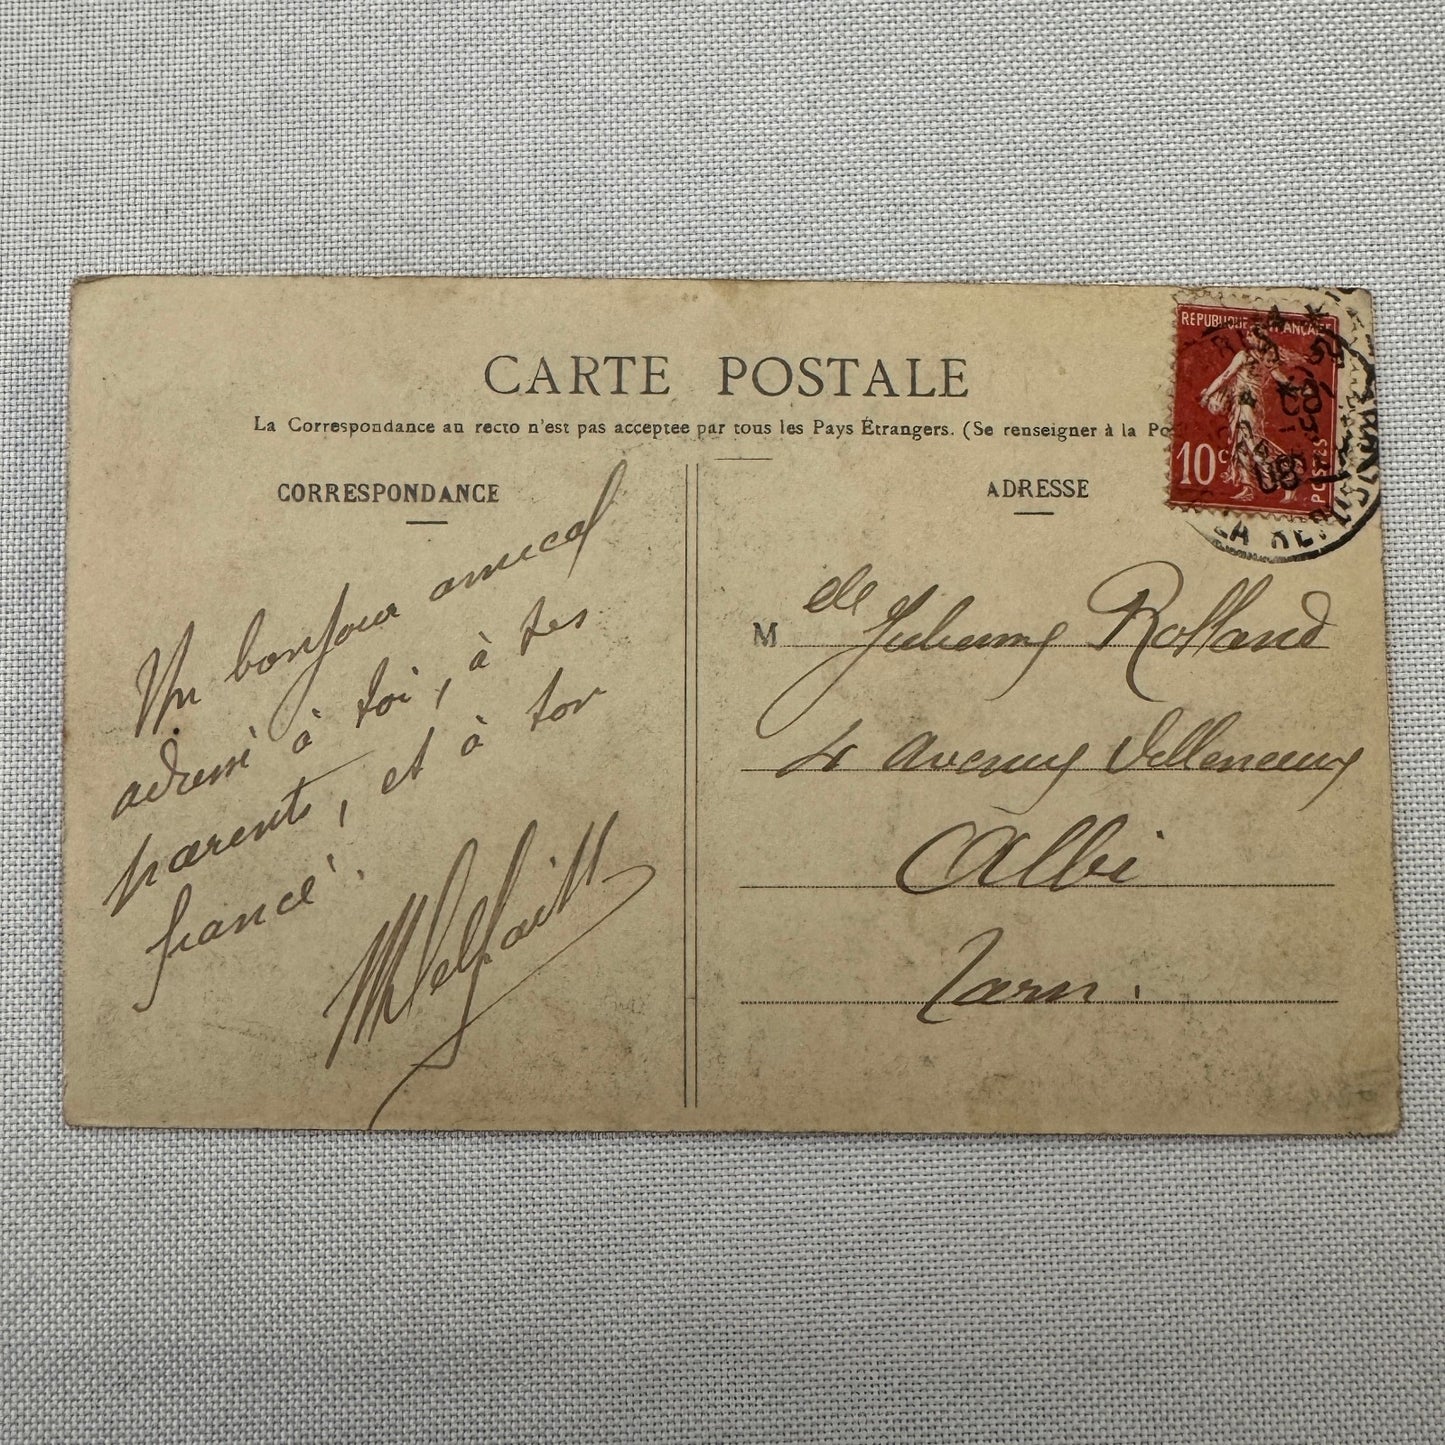 CARTE POSTALE
La Correspondance au recto n'est pas acceptée par tous les Pays Étrangers. (Se renseigner à la Po
CORRESPONDANCE
Un bonjour amical
adressé à toi, à tes
parents, et à ton
fiancé.
ADRESSE
REPUBLIQUE FRANÇAISE
10c
POSTES
08
LA RE
M elle Rolland
4 Avenue Villeneuve
Albi
Tarn.